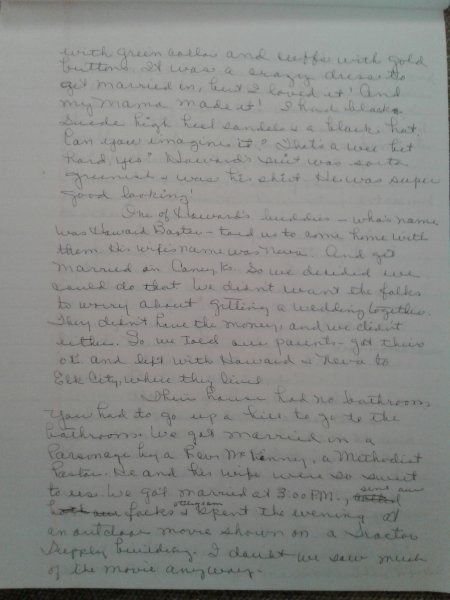 with green collar and cuffs with gold
buttons. It was a crazy dress to
get married in, but I loved it! And
my Mama made it! I had black
suede high heel sandals & a black hat.
Can you imagine it? That's a wee bit
Hard, yes? Howard's suit was sorta
greenish & was his shirt. He was super
good looking!
One of Howard's buddies - who's name
was Howard Baxter - told us to come home with
them. His wife's name was Neva. And get
married in Caney, Ks. So we decided we
could do that. We didn't want the folks
to worry about getting a wedding together.
They didn't have the money, and we didn't
either. So, we told our parents - got their
ok. and left with Howard & Neva to
Elk City, where they lived.
Their house had no bathroom
You had to go up a hill to go to the
bathroom. We got married in a
Parsonage by a Rev. McKinney, a Methodist
Pastor. He and his wife were so sweet
to us. We got married at 3:00 P.M.,
folks & spent the evening at
an outdoor movie shown on a Tractor
Supply building. I doubt we saw much
of the movie anyway.